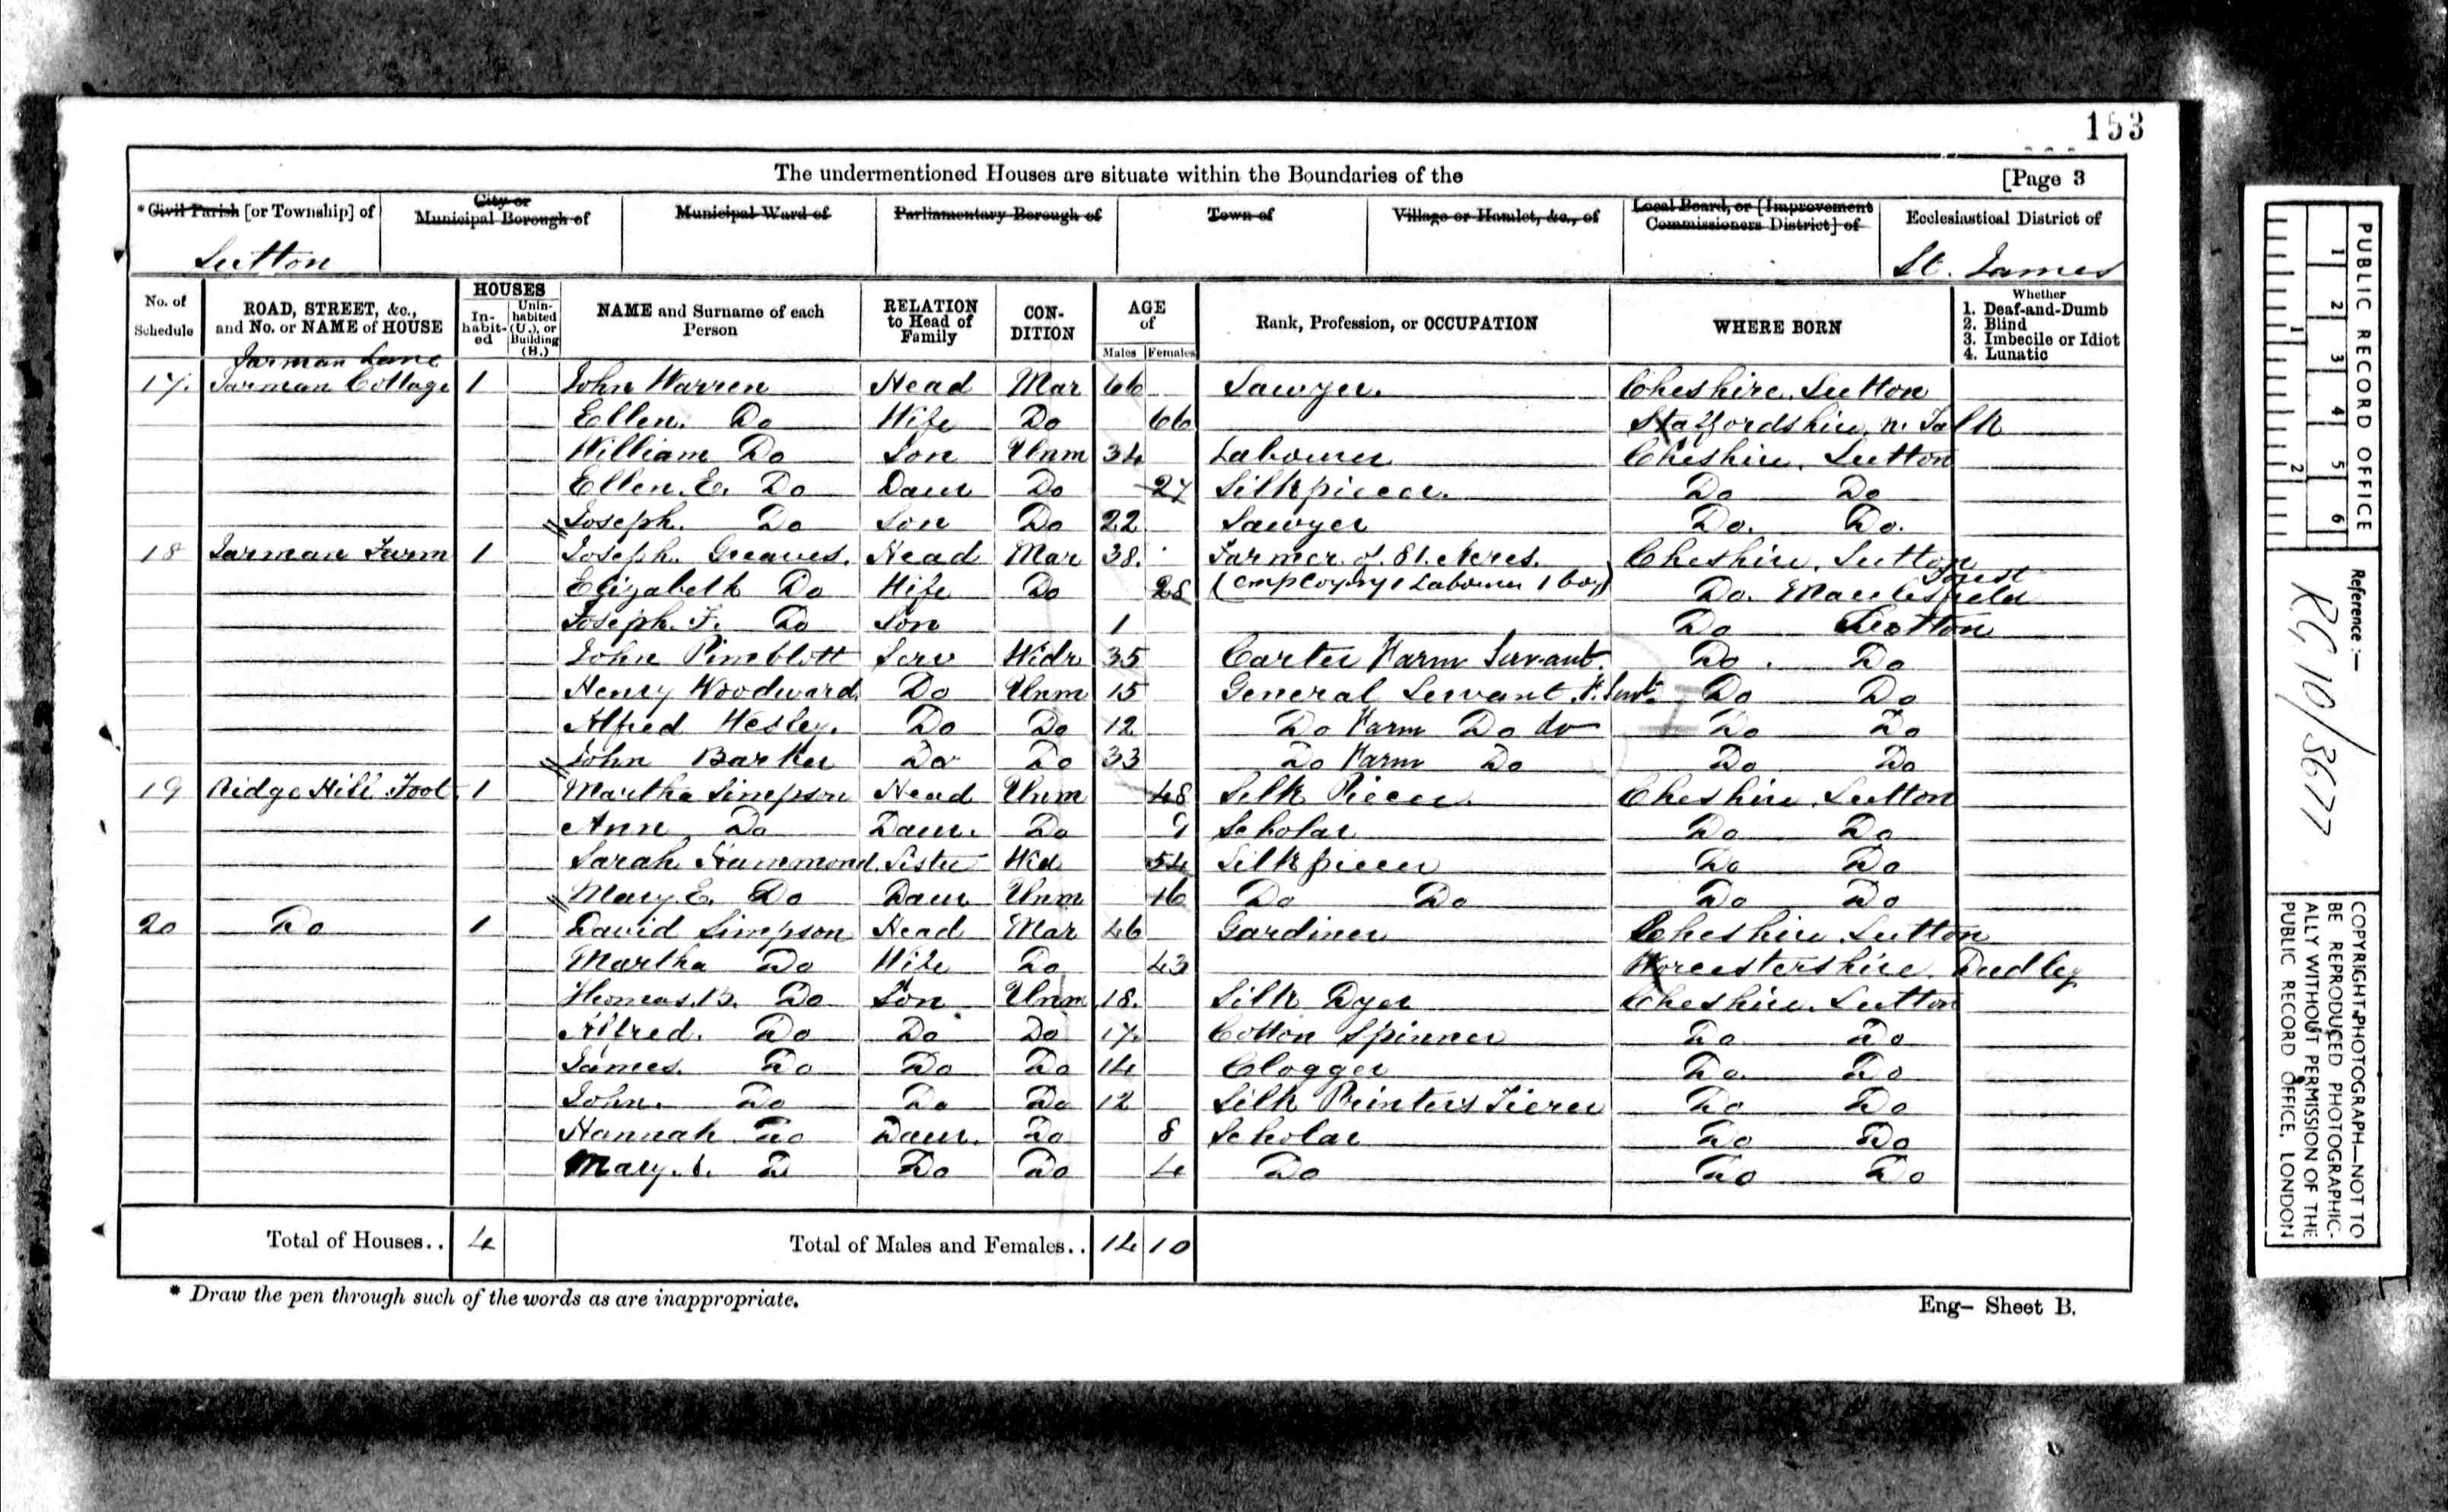 153
The undermentioned Houses are situate within the Boundaries of the [Page 3
* Civil Parish [or Township] of
City or Municipal Borough of
Municipal Ward of
Parliamentary Borough of
Town of
Village or Hamlet, &c., of
Local Board, or [Improvement Commissioners District] of
Ecclesiastical District of
Sutton St. James
No. of Schedule
ROAD, STREET, &c., and No. or NAME of HOUSE
HOUSES
In-habit-ed
Unin-habited (U.), or Building (B.)
NAME and Surname of each Person
RELATION to Head of Family
CON-DITION
AGE of
Males Females
Rank, Profession, or OCCUPATION
WHERE BORN
Whether
1. Deaf-and-Dumb
2. Blind
3. Imbecile or Idiot
4. Lunatic
Jarman Lane
17. Jarman Cottage 1 John Warren Head Mar 66 Sawyer. Cheshire. Sutton
Ellen. Do Wife Do 66 Staffordshire. n. Talk
William Do Son Unm 34 Labourer Cheshire. Sutton
Ellen. E. Do Daur Do 27 Silk piecer. Do Do
Joseph. Do Son Do 22 Sawyer Do. Do.
18 Jarman Farm 1 Joseph Greaves. Head Mar 38. Farmer of 81. Acres. Cheshire. Sutton
Elizabeth Do Wife Do 28 (employing 1 Labourer 1 boy) Do. Macclesfield Forest
Joseph. F. Do Son 1 Do Sutton
John Pimblott Serv Widr 35 Carter Farm Servant. Do. Do
Henry Woodward Do Unm 15 General Servant F. Servt. Do Do
Alfred Hesley. Do Do 12 Do Farm Do do Do Do
John Barker Do Do 33 Do Farm Do Do Do
19 Ridge Hill Foot 1 Martha Simpson Head Unm 48 Silk Piecer. Cheshire. Sutton
Ann Do Daur. Do 9 Scholar Do Do
Sarah Hammond. Sister Wid 54 Silk piecer Do Do
Mary E. Do Daur Unm 16 Do Do Do Do
20 Do 1 David Simpson Head Mar 46 Gardiner Cheshire Sutton
Martha Do Wife Do 43 Worcestershire. Dudley
Thomas. B. Do Son Unm 18. Silk Dyer Cheshire. Sutton
Alfred. Do Do Do 17. Cotton Spinner Do Do
James. Do Do Do 14 Clogger Do. Do
John. Do Do Do 12 Silk Printers Tierer Do Do
Hannah Do Daur. Do 8 Scholar Do Do
Mary. A. D Do Do 4 Do Do Do
Total of Houses.. 4 Total of Males and Females.. 14 10
* Draw the pen through such of the words as are inappropriate.
Eng- Sheet B.
PUBLIC RECORD OFFICE
1 2 3 4 5 6
1 2
Reference:—
RG 10/3677
COPYRIGHT PHOTOGRAPH—NOT TO
BE REPRODUCED PHOTOGRAPHIC-
ALLY WITHOUT PERMISSION OF THE
PUBLIC RECORD OFFICE, LONDON